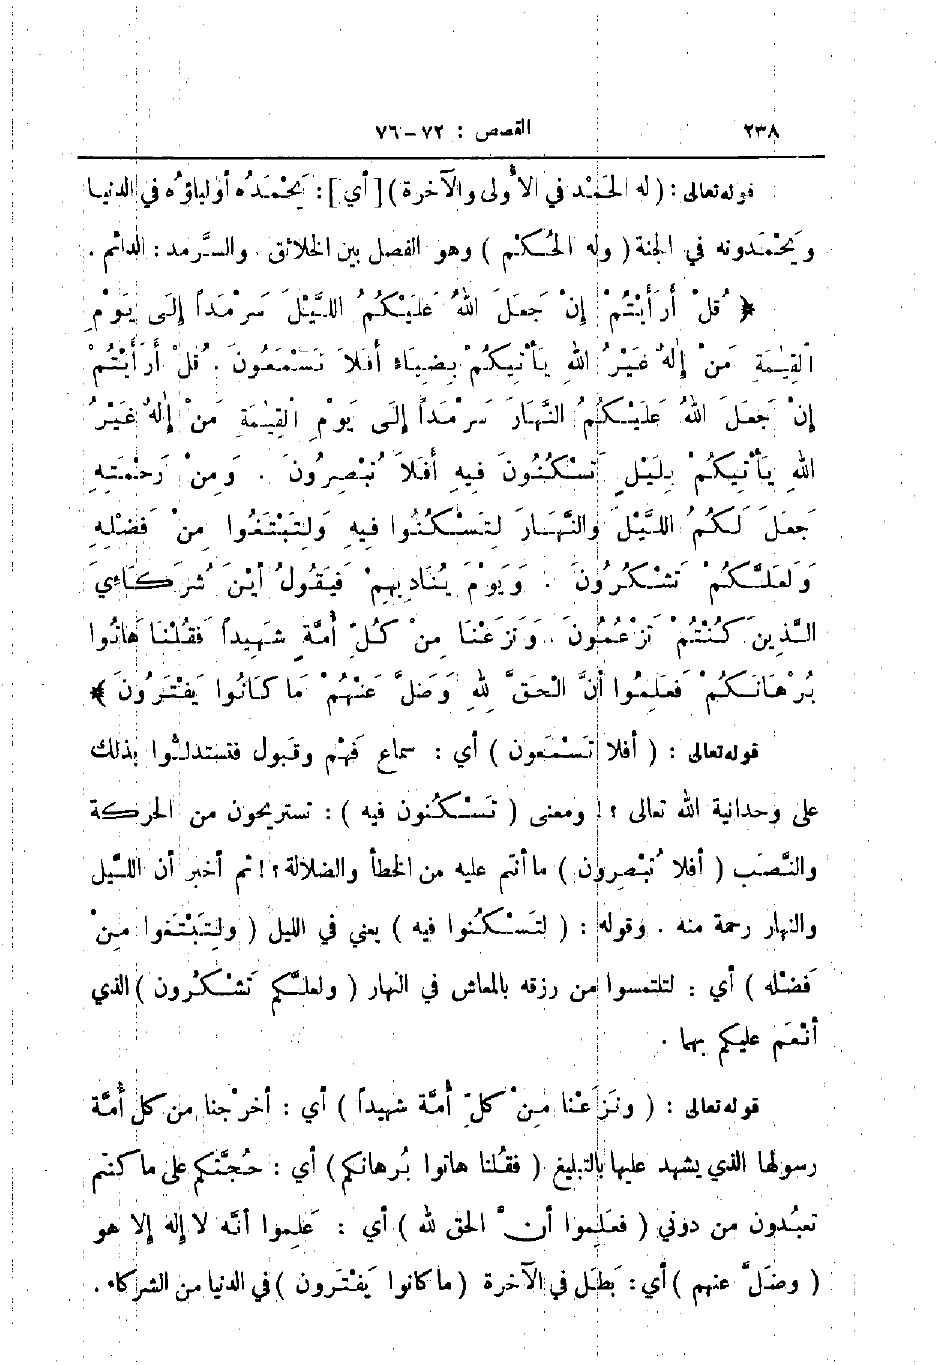 ٢٣٨ القصص : ٧٢ – ٧٦
قوله تعالى : ( له الحَمْد في الأُولى والآخرة ) [ أي ] : يَحْمَدُه أولياؤه في الدنيا
ويَحْمَدونه في الجنة ( وله الحُكْم ) وهو الفصل بين الخلائق . والسَّرمد : الدائم .
﴿ قُلْ أَرَأَيْتُمْ إِنْ جَعَلَ اللهُ عَلَيْكُمُ اللَّيْلَ سَرْمَداً إِلَى يَوْمِ
الْقِيٰمَةِ مَنْ إِلٰهٌ غَيْرُ اللهِ يَأْتِيكُمْ بِضِيَاءٍ أَفَلاَ تَسْمَعُونَ . قُلْ أَرَأَيْتُمْ
إِنْ جَعَلَ اللهُ عَلَيْكُمُ النَّهَارَ سَرْمَداً إِلَى يَوْمِ الْقِيٰمَةِ مَنْ إِلٰهٌ غَيْرُ
اللهِ يَأْتِيكُمْ بِلَيْلٍ تَسْكُنُونَ فِيهِ أَفَلاَ تُبْصِرُونَ . وَمِنْ رَحْمَتِهِ
جَعَلَ لَكُمُ اللَّيْلَ وَالنَّهَارَ لِتَسْكُنُوا فِيهِ وَلِتَبْتَغُوا مِنْ فَضْلِهِ
وَلَعَلَّكُمْ تَشْكُرُونَ . وَيَوْمَ يُنَادِيهِمْ فَيَقُولُ أَيْنَ شُرَكَائِيَ
الَّذِينَ كُنْتُمْ تَزْعُمُونَ . وَنَزَعْنَا مِنْ كُلِّ أُمَّةٍ شَهِيداً فَقُلْنَا هَاتُوا
بُرْهَانَكُمْ فَعَلِمُوا أَنَّ الْحَقَّ لِلهِ وَضَلَّ عَنْهُمْ مَا كَانُوا يَفْتَرُونَ ﴾
قوله تعالى : ( أفلا تَسْمَعون ) أي : سماع فَهْم وقَبول فتستدلُّوا بذلك
على وحدانية الله تعالى ؟! ومعنى ( تَسْكُنون فيه ) : تستريحون من الحركة
والنَّصَب ( أفلا تُبْصِرون ) ما أنتم عليه من الخطأ والضلالة ؟! ثم أخبر أن اللَّيل
والنهار رحمة منه . وقوله : ( لتَسْكُنوا فيه ) يعني في الليل ( ولِتَبْتَغوا مِنْ
فَضْله ) أي : لتلتمسوا من رزقه بالمعاش في النهار ( ولعلَّكم تَشْكُرون ) الذي
أنْعَم عليكم بهما .
قوله تعالى : ( ونَزَعْنا مِنْ كلِّ أُمَّة شهيداً ) أي : أخرجْنا من كل أُمَّة
رسولها الذي يشهد عليها بالتبليغ ( فقُلنا هاتوا بُرهانكم ) أي : حُجَّتكم على ما كنتم
تعبُدون من دوني ( فعَلِموا أنَّ الحق لله ) أي : عَلِموا أنَّه لا إله إلا هو
( وضَلَّ عنهم ) أي : بَطَل في الآخرة ( ما كانوا يَفْتَرون ) في الدنيا من الشركاء .